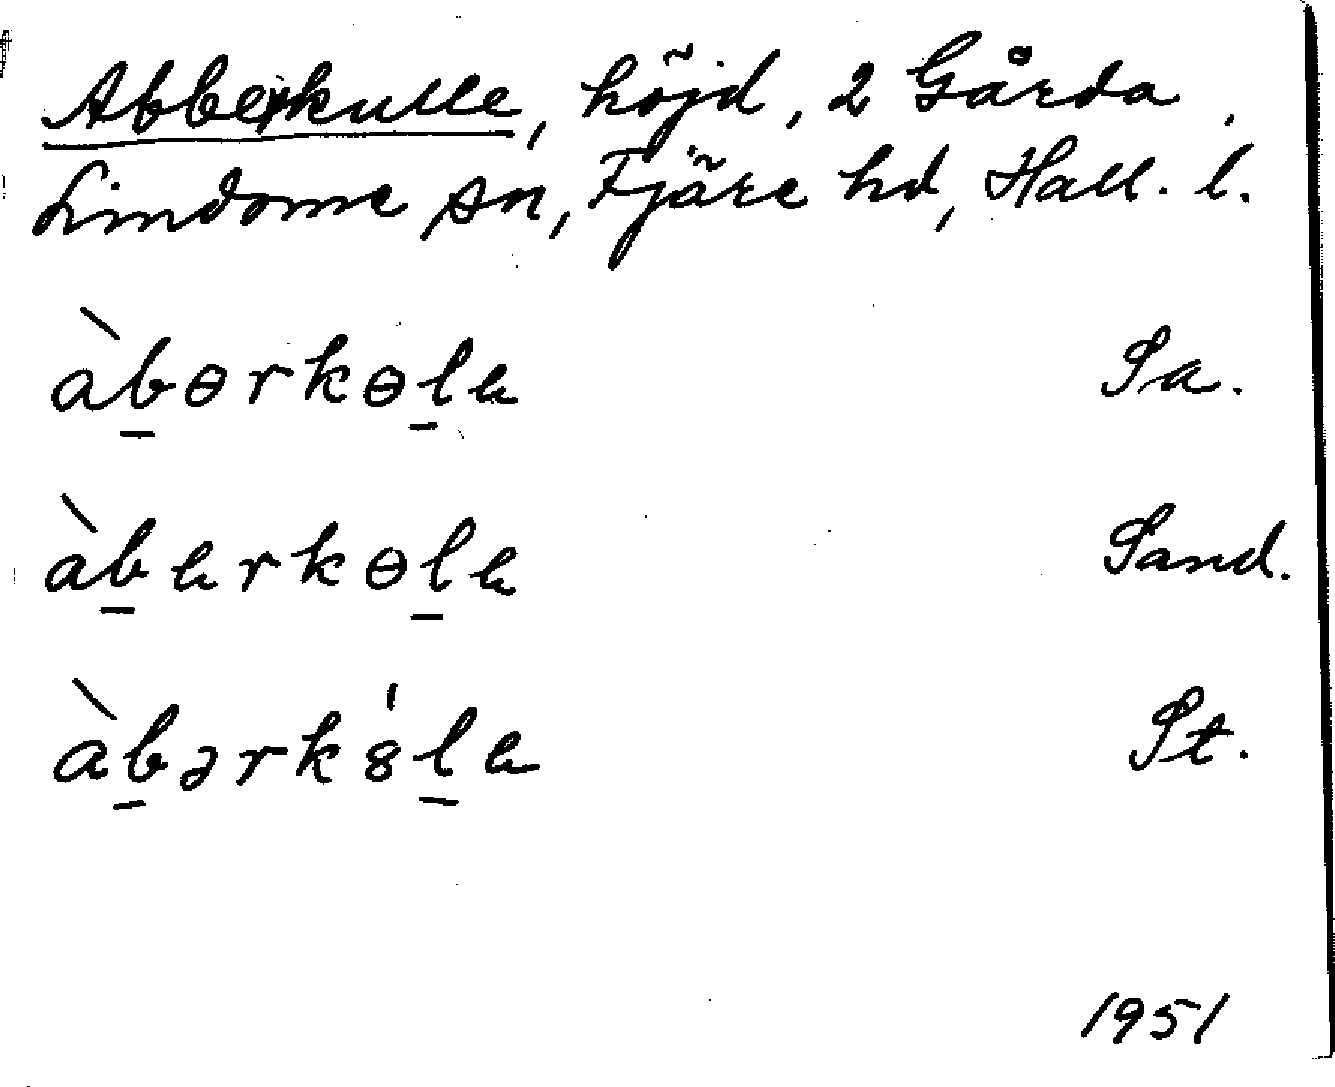 Abberkulle, höjd, 2 Gårda.
Lindome sn, Fjäre hd, Hall. l.
àb̲ɵrkɵl̲a Sa.
àb̲arkɵl̲a Sand.
àb̲ərk8́l̲a St.
1951